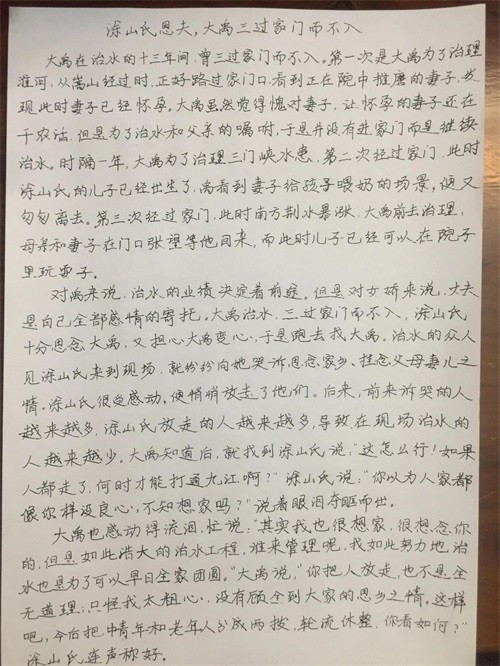 涂山氏思夫，大禹三过家门而不入
大禹在治水的十三年间，曾三过家门而不入。第一次是大禹为了治理
淮河，从嵩山经过时，正好路过家门口，看到正在院中推磨的妻子，发
现此时妻子已经怀孕。大禹虽然觉得愧对妻子，让怀孕的妻子还在
干农活，但是为了治水和父亲的嘱咐，于是并没有进家门而是继续
治水。时隔一年，大禹为了治理三门峡水患，第二次经过家门，此时
涂山氏的儿子已经出生了，禹看到妻子给孩子喂奶的场景，便又
匆匆离去。第三次经过家门，此时南方荆水暴涨，大禹前去治理，
母亲和妻子在门口张望等他回来，而此时儿子已经可以在院子
里玩耍了。
对禹来说，治水的业绩决定着前途。但是对女娇来说，丈夫
是自己全部感情的寄托。大禹治水，三过家门而不入，涂山氏
十分思念大禹，又担心大禹变心，于是跑去找大禹。治水的众人
见涂山氏来到现场，就纷纷向她哭诉思念家乡，挂念父母妻儿之
情。涂山氏很受感动，便悄悄放走了他们。后来，前来诉哭的人
越来越多，涂山氏放走的人越来越多，导致在现场治水的
人越来越少。大禹知道后，就找到涂山氏说，“这怎么行！如果
人都走了，何时才能打通九江啊？”涂山氏说：“你以为人家都
像你样没良心，不知想家吗？”说着眼泪夺眶而出。
大禹也感动得流泪，忙说：“其实我也很想家，很想念你
的，但是如此浩大的治水工程，谁来管理呢，我如此努力地治
水也是为了可以早日全家团圆。”大禹说，“你把人放走，也不是全
无道理，只怪我太粗心，没有顾全到大家的思乡之情。这样
吧，今后把中青年和老年人分成两拨，轮流休整，你看如何？”
涂山氏连声称好。